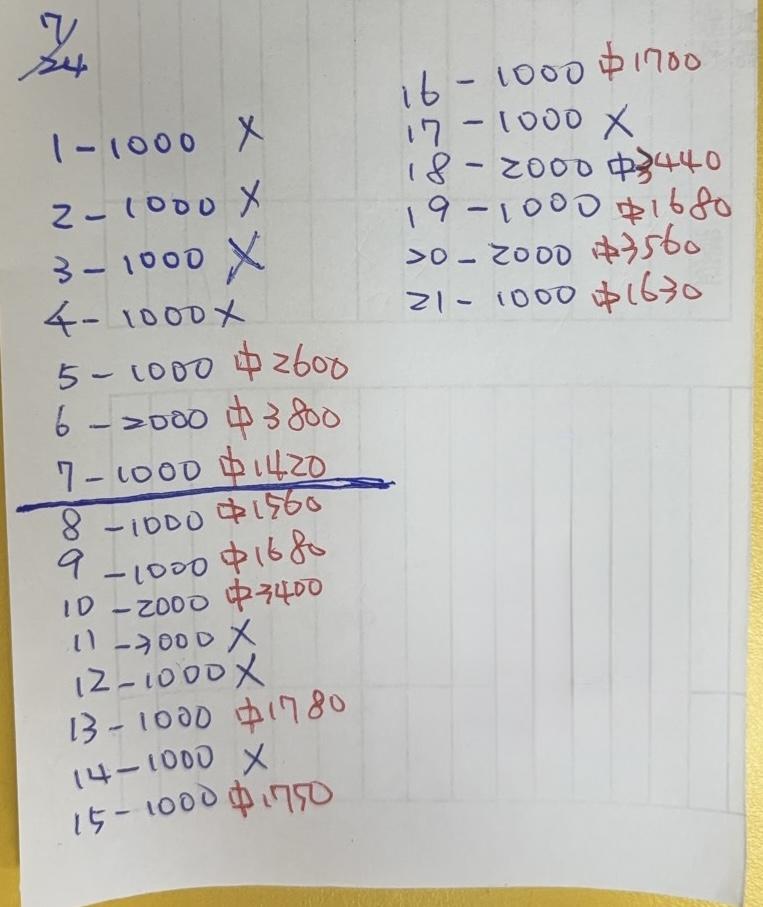 7/24
1-1000 X
2-1000 X
3-1000 X
4-1000 X
5-1000 中2600
6-2000 中3800
7-1000 中1420
8-1000 中1560
9-1000 中1680
10-2000 中3400
11-2000 X
12-1000 X
13-1000 中1780
14-1000 X
15-1000 中1750
16-1000 中1700
17-1000 X
18-2000 中3440
19-1000 中1680
20-2000 中3560
21-1000 中1630